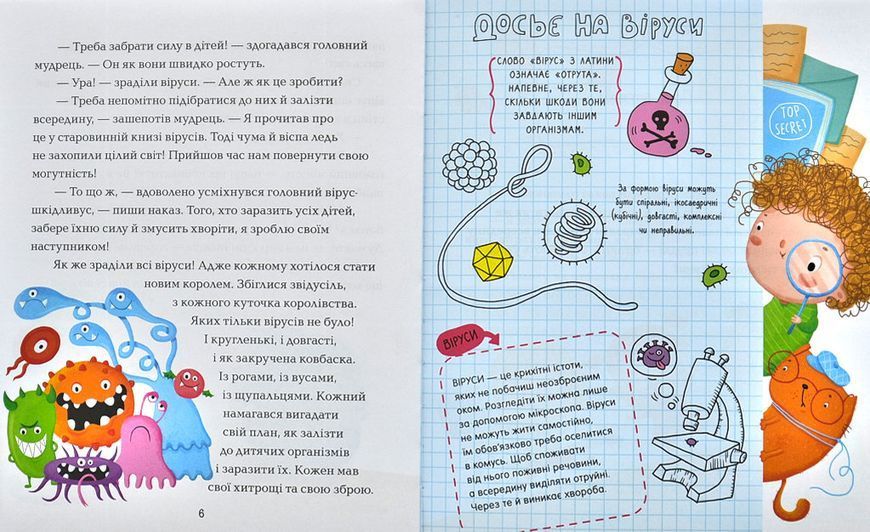 — Треба забрати силу в дітей! — здогадався головний
мудрець. — Он як вони швидко ростуть.
— Ура! — зраділи віруси. — Але ж як це зробити?
— Треба непомітно підібратися до них й залізти
всередину, — зашепотів мудрець. — Я прочитав про
це у старовинній книзі вірусів. Тоді чума й віспа ледь
не захопили цілий світ! Прийшов час нам повернути свою
могутність!
— То що ж, — вдоволено усміхнувся головний вірус-
шкідливус, — пиши наказ. Того, хто заразить усіх дітей,
забере їхню силу й змусить хворіти, я зроблю своїм
наступником!
Як же зраділи всі віруси! Адже кожному хотілося стати
новим королем. Збіглися звідусіль,
з кожного куточка королівства.
Яких тільки вірусів не було!
І кругленькі, і довгасті,
і як закручена ковбаска.
Із рогами, із вусами,
із щупальцями. Кожний
намагався вигадати
свій план, як залізти
до дитячих організмів
і заразити їх. Кожен мав
свої хитрощі та свою зброю.
6
ДОСЬЄ НА ВІРУСИ
СЛОВО «ВІРУС» З ЛАТИНИ
ОЗНАЧАЄ «ОТРУТА».
НАПЕВНЕ, ЧЕРЕЗ ТЕ,
СКІЛЬКИ ШКОДИ ВОНИ
ЗАВДАЮТЬ ІНШИМ
ОРГАНІЗМАМ.
За формою віруси можуть
бути спіральні, ікосаедричні
(кубічні), довгасті, комплексні
чи неправильні.
ВІРУСИ
ВІРУСИ — це крихітні істоти,
яких не побачиш неозброєним
оком. Розгледіти їх можна лише
за допомогою мікроскопа. Віруси
не можуть жити самостійно,
їм обов'язково треба оселитися
в комусь. Щоб споживати
від нього поживні речовини,
а всередину виділяти отруйні.
Через те й виникає хвороба.
TOP
SECRET